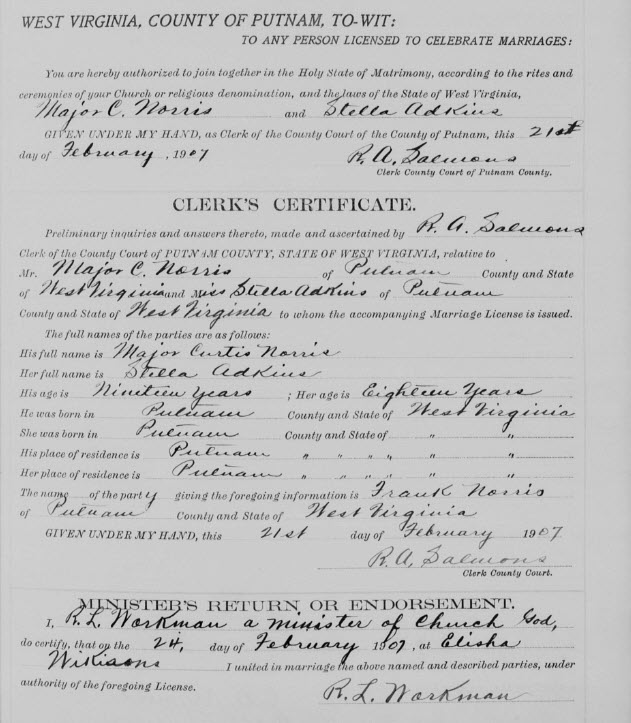 WEST VIRGINIA, COUNTY OF PUTNAM, TO-WIT:
TO ANY PERSON LICENSED TO CELEBRATE MARRIAGES:
You are hereby authorized to join together in the Holy State of Matrimony, according to the rites and
ceremonies of your Church or religious denomination, and the laws of the State of West Virginia,
Major C. Norris and Stella Adkins
GIVEN UNDER MY HAND, as Clerk of the County Court of the County of Putnam, this 21st
day of February, 1907 R. A. Salmons
Clerk County Court of Putnam County.
CLERK'S CERTIFICATE.
Preliminary inquiries and answers thereto, made and ascertained by R. A. Salmons
Clerk of the County Court of PUTNAM COUNTY, STATE OF WEST VIRGINIA, relative to
Mr. Major C. Norris of Putnam County and State
of West Virginia and Miss Stella Adkins of Putnam
County and State of West Virginia to whom the accompanying Marriage License is issued.
The full names of the parties are as follows:
His full name is Major Curtis Norris
Her full name is Stella Adkins
His age is Nineteen Years ; Her age is Eighteen Years
He was born in Putnam County and State of West Virginia
She was born in Putnam County and State of " "
His place of residence is Putnam " " " " " "
Her place of residence is Putnam " " " " " "
The name of the party giving the foregoing information is Frank Norris
of Putnam County and State of West Virginia
GIVEN UNDER MY HAND, this 21st day of February 1907
R. A. Salmons
Clerk County Court.
MINISTER'S RETURN OR ENDORSEMENT.
I, R. L. Workman a minister of Church God,
do certify, that on the 24, day of February 1907, at Elisha
Wikisons I united in marriage the above named and described parties, under
authority of the foregoing License.
R. L. Workman